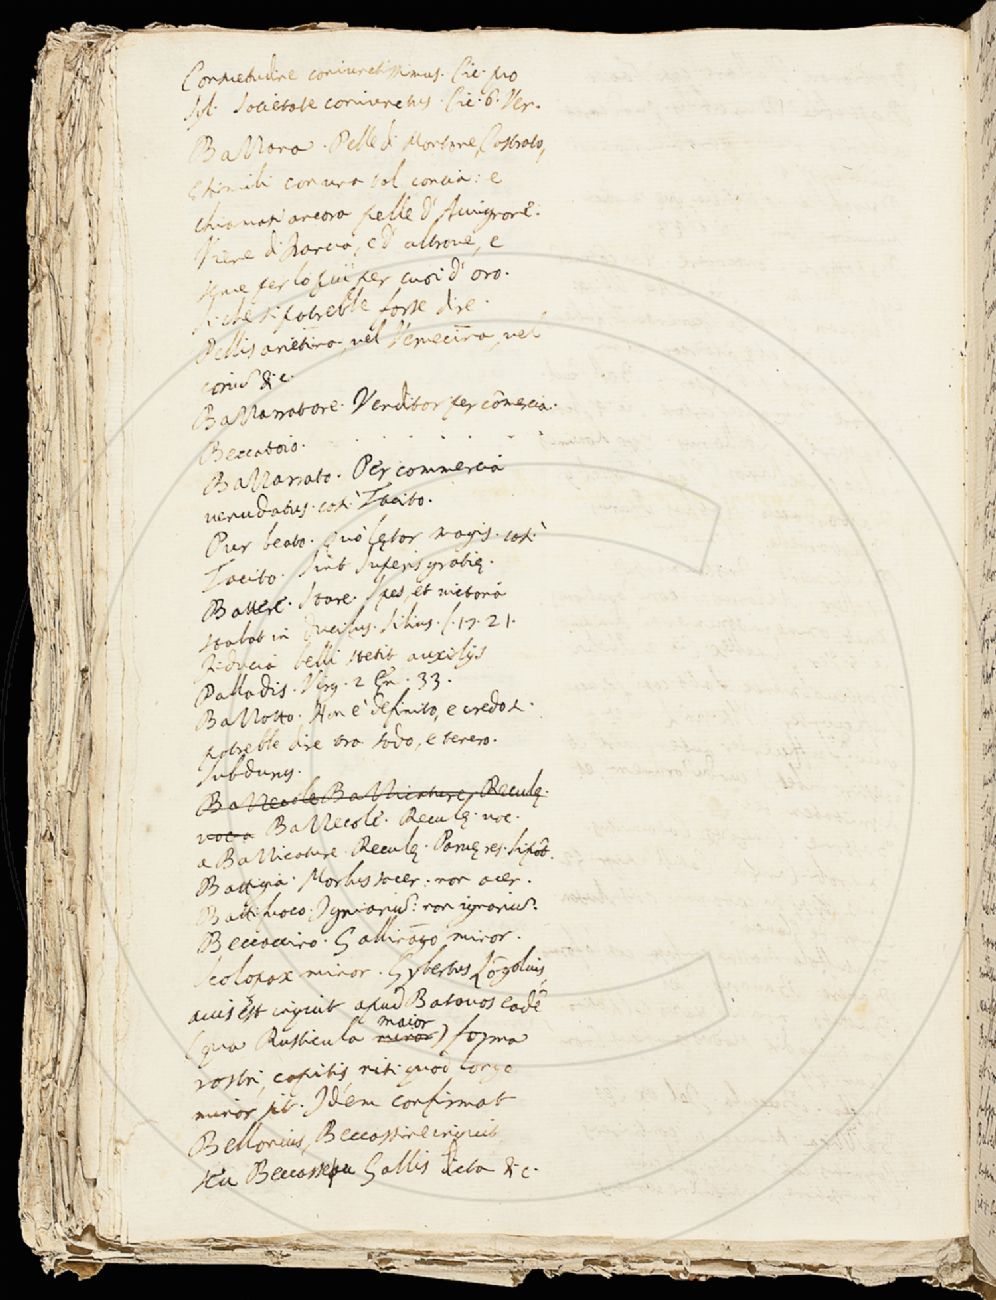 Consuetudine coniunctissimus. Cic. pro
Syl. Societate coniunctus. Cic. 6. Ver.
Bazzana. Pelle di Montone, Castrato,
e simili con una tal concia: e
chiamasi ancora pelle d'Avignone.
Viene di Francia, e d'altrove, e
serve per lo più per cuoi d'oro.
si che si potrebbe forse dire.
Pellis arietina, vel Vervecina, vel
coriũ &c.
Bazzarratore. Venditor per cõmercia.
Beccatoio. . . . . . .
Bazzarrato. Per commercia
venundatus. così Tacito.
Pur beato. quò lętor magis. così
Tacito. Sint Superis gratię.
Battere. Stare. Spes, et victoria
stabat in Ducibus. Silius. l. 17. 21.
Fiducia belli stetit auxilijs
Palladis. Virg. 2 Ęn. 33.
Bazzotto. Non è definito, e credo si
potrebbe dire tra sodo, e tenero.
Subdurus.
Bazzecole Bazzicature. Reculę.
voc. a Bazzecole. Reculę. voc.
a Bazzicature. Reculę. Paruę res.
Battigia. Morbus sacer: non acer.
Battifuoco. Igniariũ: non ignariũ.
Beccaccino. Gallinago minor.
Scolopax minor. Gybertus Lõgolius,
auis est inquit apud Batavos eadẽ
(qua Rusticula maior minor) forma
rostri, capitis, nisi quod longe
minor sit. Idem confirmat
Bellonius, Beccassine inquit
seu Beccasseau Gallis dicta &c.